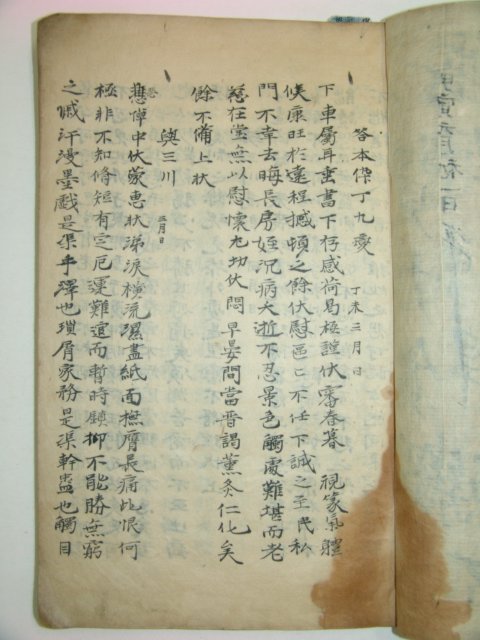 答本倅丁九燮 丁未三月日
下車屬耳垂書下存感荷曷極謹伏審春暮 視篆氣體
候康旺於遠程撼頓之餘伏慰區區不任下誠之至民私
門不幸去晦長房姪沉病大逝不忍景色觸處難堪而老
慈在堂無以慰懷尤切伏悶早晏間當晋謁薰炙仁化矣
餘不備上狀
與三川 三月日
悲悼中伏蒙惠狀涕淚橫流濕盡紙面撫膺長痛此恨何
極非不知脩短有定厄運難逭而暫時鎮抑不能勝無窮
之慽汗漫墨戲是渠手澤也瑣屑家務是渠幹蠱也觸目